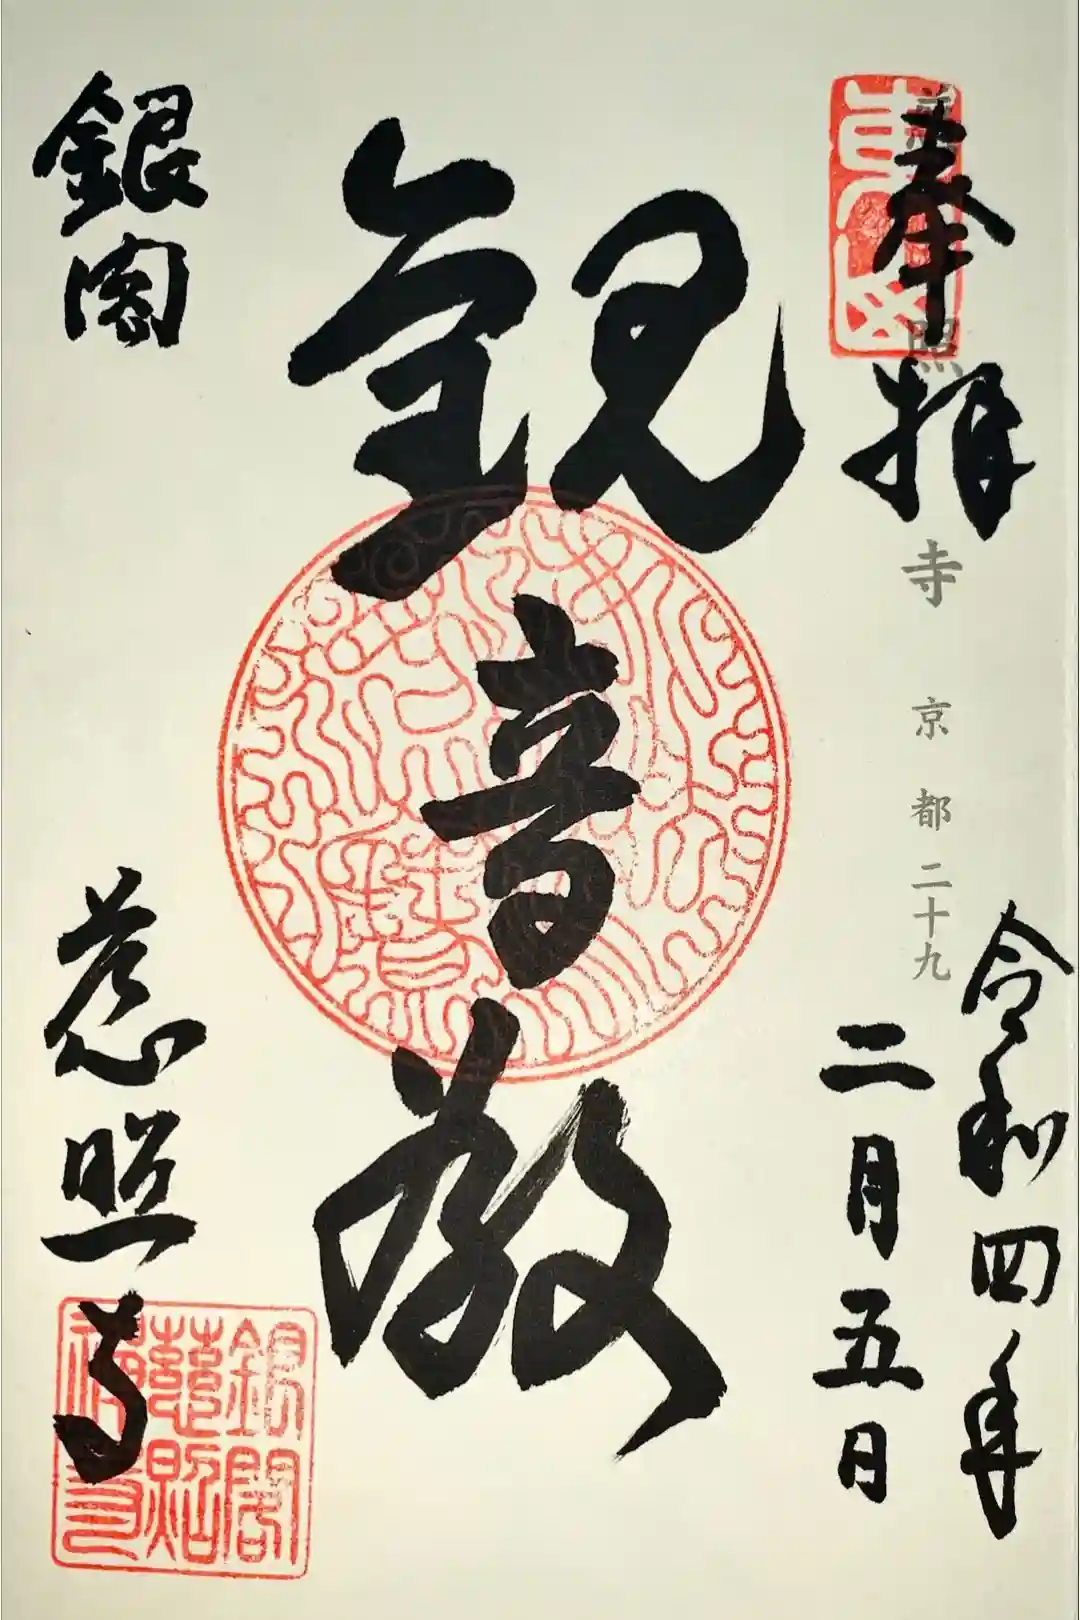 奉拝
慈照寺 京都二十九
令和四年
二月五日
観音殿
銀閣
慈照寺
銀閣
慈照
禅寺